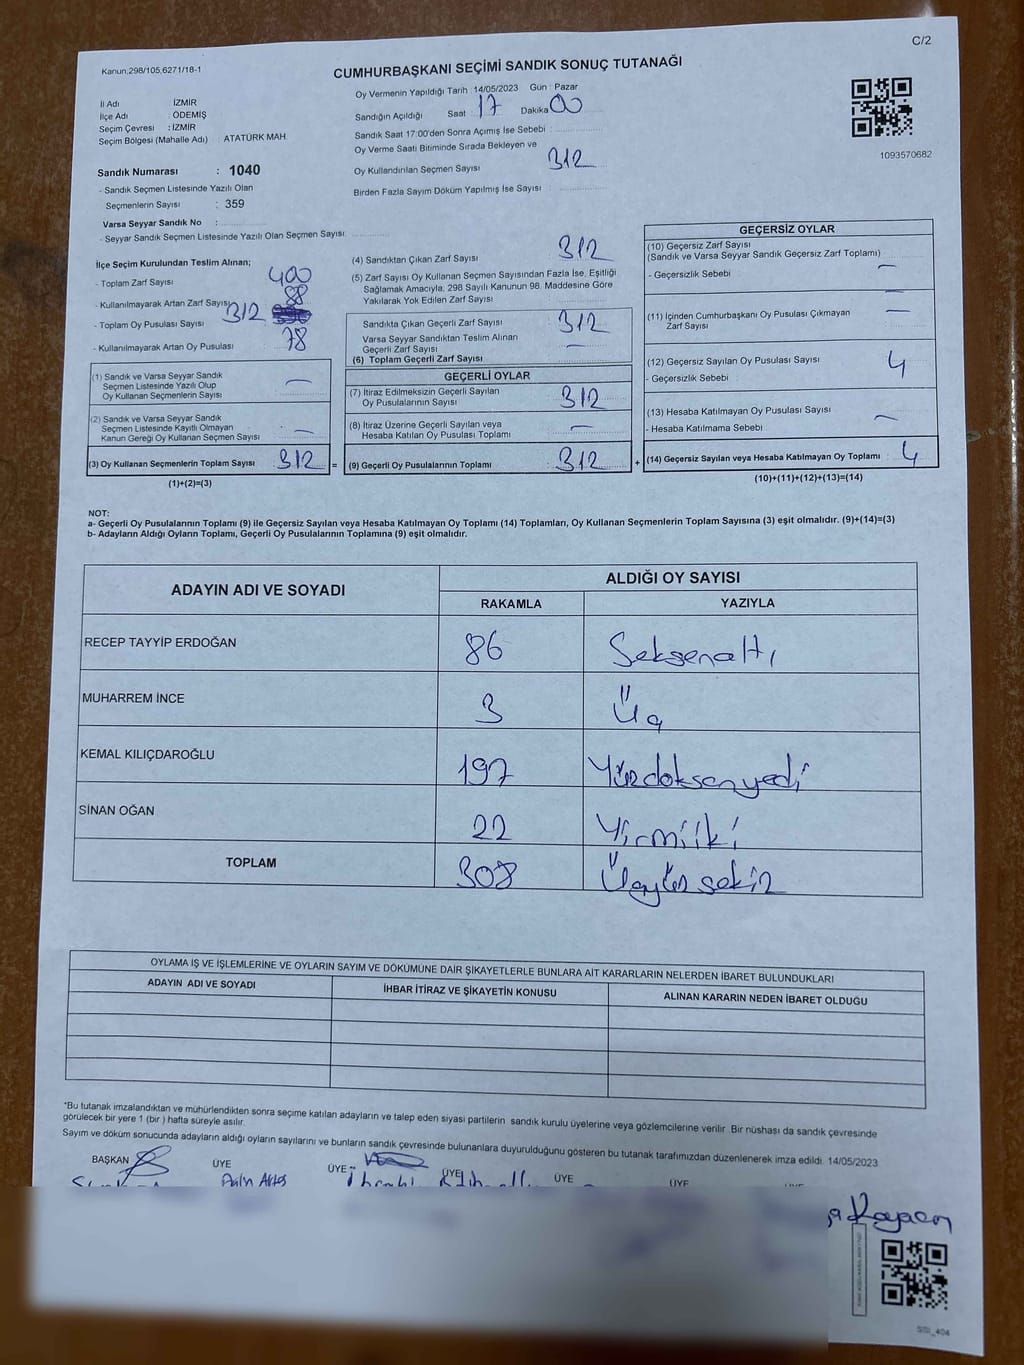 C/2
Kanun,298/105,6271/18-1
CUMHURBAŞKANI SEÇİMİ SANDIK SONUÇ TUTANAĞI
İl Adı İZMİR
İlçe Adı : ÖDEMİŞ
Seçim Çevresi : İZMİR
Seçim Bölgesi (Mahalle Adı) : ATATÜRK MAH.
Sandık Numarası : 1040
- Sandık Seçmen Listesinde Yazılı Olan
Seçmenlerin Sayısı : 359
Varsa Seyyar Sandık No :
- Seyyar Sandık Seçmen Listesinde Yazılı Olan Seçmen Sayısı:
Oy Vermenin Yapıldığı Tarih :14/05/2023 Gün : Pazar
Sandığın Açıldığı Saat : 17 Dakika 00
Sandık Saat 17:00'den Sonra Açımış İse Sebebi :
Oy Verme Saati Bitiminde Sırada Bekleyen ve
Oy Kullandırılan Seçmen Sayısı 312
Birden Fazla Sayım Döküm Yapılmış İse Sayısı :
1093570682
İlçe Seçim Kurulundan Teslim Alınan;
- Toplam Zarf Sayısı 400
- Kullanılmayarak Artan Zarf Sayısı 88
- Toplam Oy Pusulası Sayısı 312
- Kullanılmayarak Artan Oy Pusulası 78
(1) Sandık ve Varsa Seyyar Sandık
Seçmen Listesinde Yazılı Olup
Oy Kullanan Seçmenlerin Sayısı : —
(2) Sandık ve Varsa Seyyar Sandık
Seçmen Listesinde Kayıtlı Olmayan
Kanun Gereği Oy Kullanan Seçmen Sayısı : —
(3) Oy Kullanan Seçmenlerin Toplam Sayısı : 312
(1)+(2)=(3)
=
(4) Sandıktan Çıkan Zarf Sayısı : 312
(5) Zarf Sayısı Oy Kullanan Seçmen Sayısından Fazla İse, Eşitliği
Sağlamak Amacıyla, 298 Sayılı Kanunun 98. Maddesine Göre
Yakılarak Yok Edilen Zarf Sayısı
Sandıkta Çıkan Geçerli Zarf Sayısı : 312
Varsa Seyyar Sandıktan Teslim Alınan
Geçerli Zarf Sayısı —
(6) Toplam Geçerli Zarf Sayısı
GEÇERLİ OYLAR
(7) İtiraz Edilmeksizin Geçerli Sayılan
Oy Pusulalarının Sayısı : 312
(8) İtiraz Üzerine Geçerli Sayılan veya
Hesaba Katılan Oy Pusulası Toplamı : —
(9) Geçerli Oy Pusulalarının Toplamı : 312
+
GEÇERSİZ OYLAR
(10) Geçersiz Zarf Sayısı
(Sandık ve Varsa Seyyar Sandık Geçersiz Zarf Toplamı) :
- Geçersizlik Sebebi : —
(11) İçinden Cumhurbaşkanı Oy Pusulası Çıkmayan
Zarf Sayısı : —
(12) Geçersiz Sayılan Oy Pusulası Sayısı : 4
- Geçersizlik Sebebi :
(13) Hesaba Katılmayan Oy Pusulası Sayısı :
- Hesaba Katılmama Sebebi : —
(14) Geçersiz Sayılan veya Hesaba Katılmayan Oy Toplamı : 4
(10)+(11)+(12)+(13)=(14)
NOT:
a- Geçerli Oy Pusulalarının Toplamı (9) ile Geçersiz Sayılan veya Hesaba Katılmayan Oy Toplamı (14) Toplamları, Oy Kullanan Seçmenlerin Toplam Sayısına (3) eşit olmalıdır. (9)+(14)=(3)
b- Adayların Aldığı Oyların Toplamı, Geçerli Oy Pusulalarının Toplamına (9) eşit olmalıdır.
ADAYIN ADI VE SOYADI ALDIĞI OY SAYISI
RAKAMLA YAZIYLA
RECEP TAYYİP ERDOĞAN 86 Seksenaltı
MUHARREM İNCE 3 Üç
KEMAL KILIÇDAROĞLU 197 Yüzdoksanyedi
SİNAN OĞAN 22 Yirmiiki
TOPLAM 308 Üçyüz sekiz
OYLAMA İŞ VE İŞLEMLERİNE VE OYLARIN SAYIM VE DÖKÜMÜNE DAİR ŞİKAYETLERLE BUNLARA AİT KARARLARIN NELERDEN İBARET BULUNDUKLARI
ADAYIN ADI VE SOYADI İHBAR İTİRAZ VE ŞİKAYETİN KONUSU ALINAN KARARIN NEDEN İBARET OLDUĞU
*Bu tutanak imzalandıktan ve mühürlendikten sonra seçime katılan adayların ve talep eden siyasi partilerin sandık kurulu üyelerine veya gözlemcilerine verilir. Bir nüshası da sandık çevresinde
görülecek bir yere 1 (bir) hafta süreyle asılır.
Sayım ve döküm sonucunda adayların aldığı oyların sayılarını ve bunların sandık çevresinde bulunanlara duyurulduğunu gösteren bu tutanak tarafımızdan düzenlenerek imza edildi. 14/05/2023
BAŞKAN ÜYE ÜYE ÜYE ÜYE ÜYE ÜYE